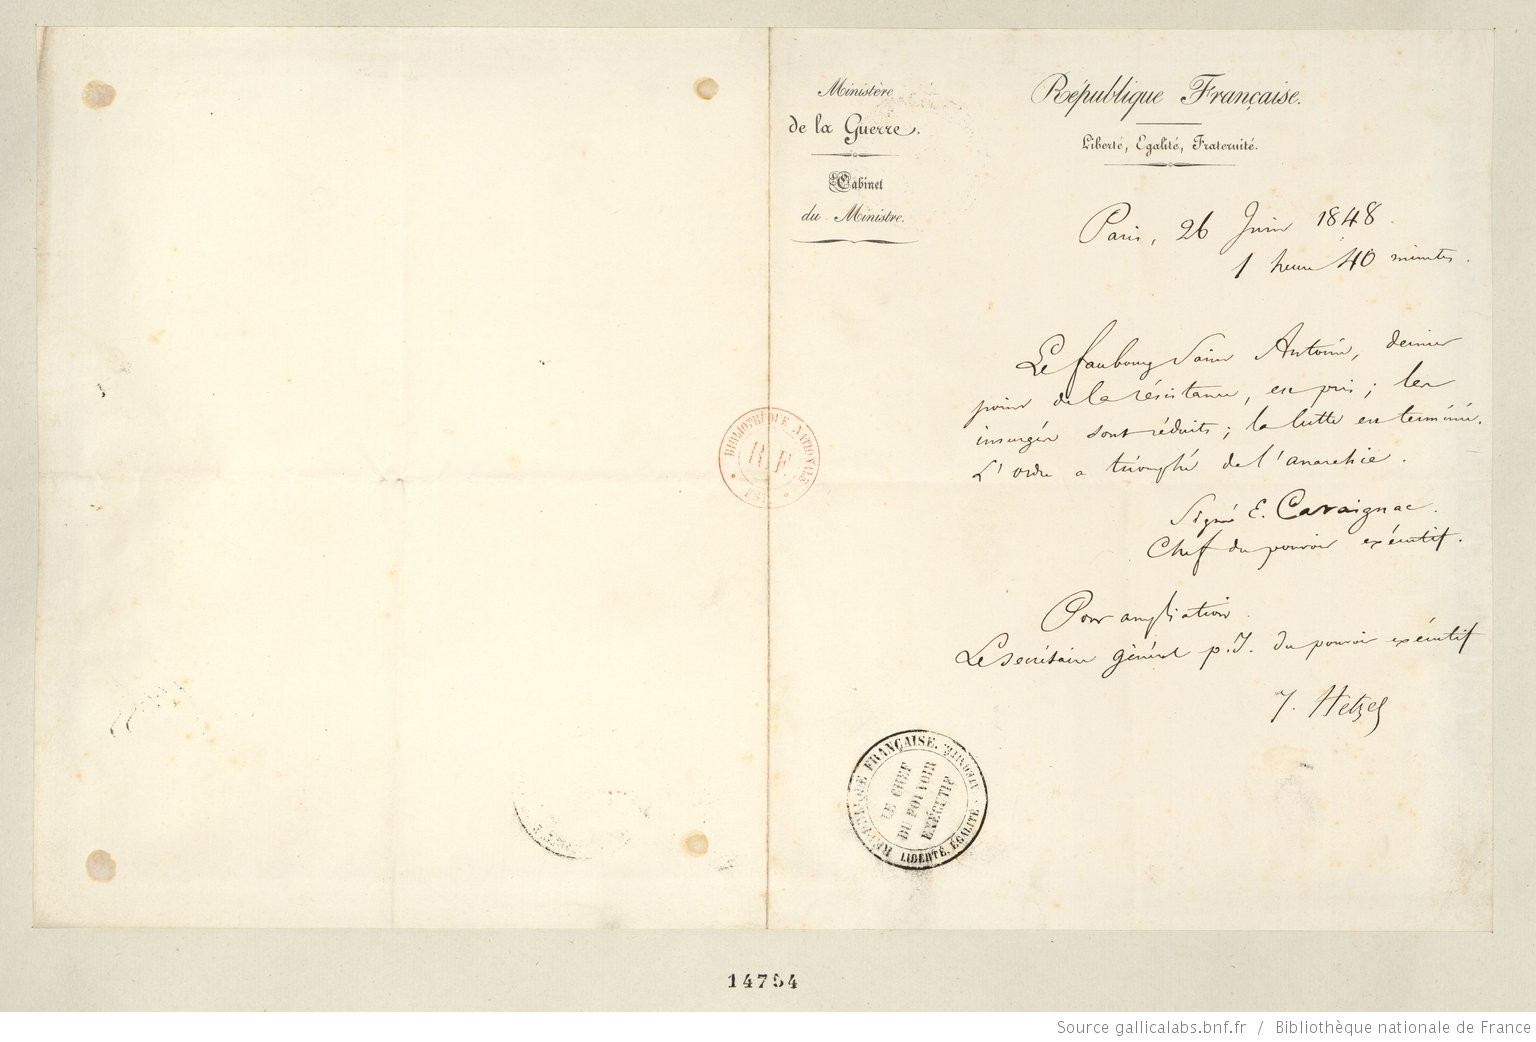 Ministère
de la Guerre.
Cabinet
du Ministre.
République Française.
Liberté, Egalité, Fraternité.
Paris, 26 Juin 1848.
1 heure 40 minutes.
Le faubourg Saint Antoine, dernier
point de la résistance, est pris ; les
insurgés sont réduits ; la lutte est terminée.
L'ordre a triomphé de l'anarchie.
Signé E. Cavaignac.
Chef du pouvoir exécutif.
Pour ampliation
Le secrétaire général p. I. du pouvoir exécutif
J. Hetzel
BIBLIOTHÈQUE NATIONALE
R.F.
RÉPUBLIQUE FRANÇAISE.
LE CHEF
DU POUVOIR
EXÉCUTIF
LIBERTÉ, ÉGALITÉ, FRATERNITÉ.
14754
Source gallicalabs.bnf.fr / Bibliothèque nationale de France